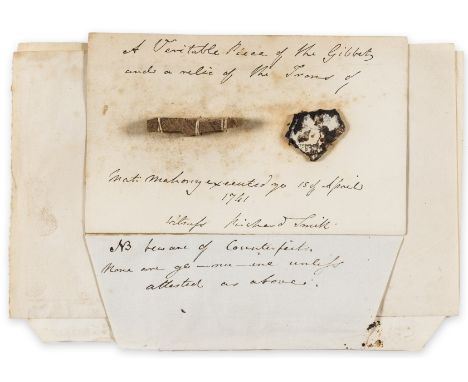 A Veritable Piece of the Gibbet
and a relic of the Irons of
Matt Mahony executed 15 of April
1741
Witness Richard Smith
NB beware of Counterfeits
None are ge-nu-ine unless
attested as above.